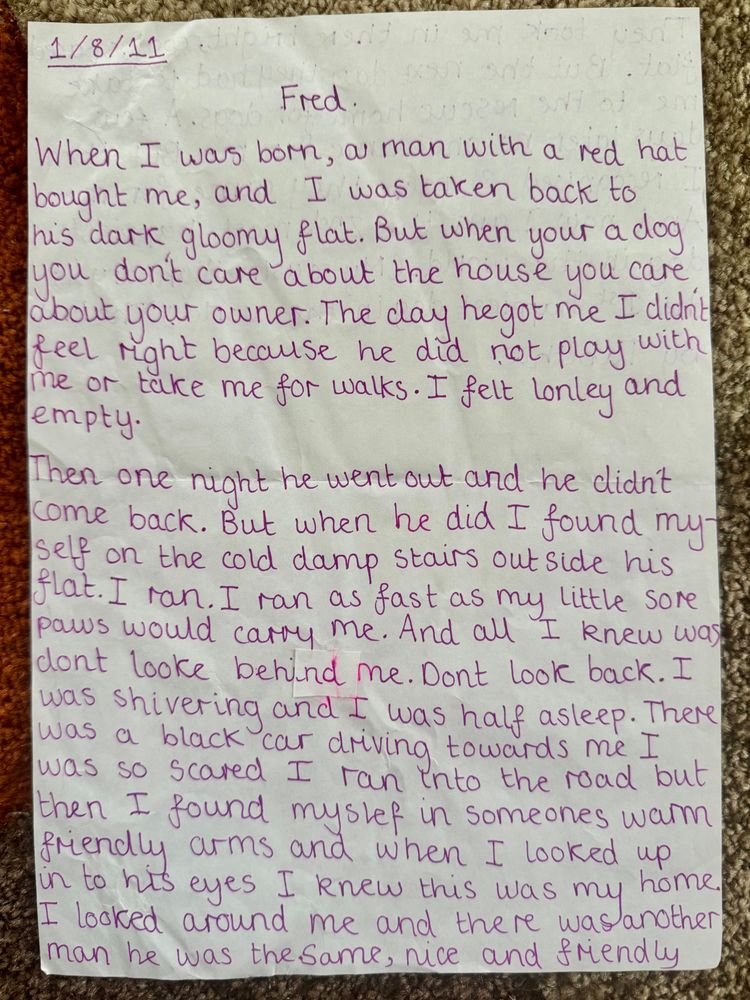 1/8/11
Fred.
When I was born, a man with a red hat
bought me, and I was taken back to
his dark gloomy flat. But when your a dog
you don't care about the house you care
about your owner. The day he got me I didn't
feel right because he did not play with
me or take me for walks. I felt lonley and
empty.
Then one night he went out and he didn't
come back. But when he did I found my-
self on the cold damp stairs outside his
flat. I ran. I ran as fast as my little sore
paws would carry me. And all I knew was
dont looke behind me. Dont look back. I
was shivering and I was half asleep. There
was a black car driving towards me I
was so scared I ran into the road but
then I found myslef in someones warm
friendly arms and when I looked up
in to his eyes I knew this was my home.
I looked around me and there was another
man he was the same, nice and friendly